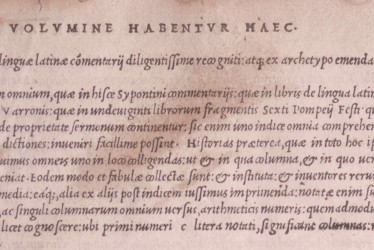 VOLVMINE HABENTVR HAEC.
linguæ latinæ cõmentarij diligentissime recogniti: atq; ex archetypo emenda
m omnium, quæ in hisce Sypontini commentarijs: quæ in libris de lingua latin
Varronis: quæ in undeuiginti librorum fragmentis Sexti Pompeij Festi: q
de proprietate sermonum continentur: sic enim uno indice omnia comprehen
dictiones: inueniri facillime possint. Historias præterea, quæ in toto hoc ip
uimus omneis uno in loco colligendas: ut & in qua columna, & in quo uer
eniat. Eodem modo et fabulæ collectæ sunt: & instituta: & inuentores rerum
media; eáq;, alia ex alijs post indicem iussimus imprimenda: notatæ enim su
ac singuli columnarum omnium uersus, arithmeticis numeris: quem admodu
licet cognoscere: ubi primi numeri c litera notati, significant columnas: